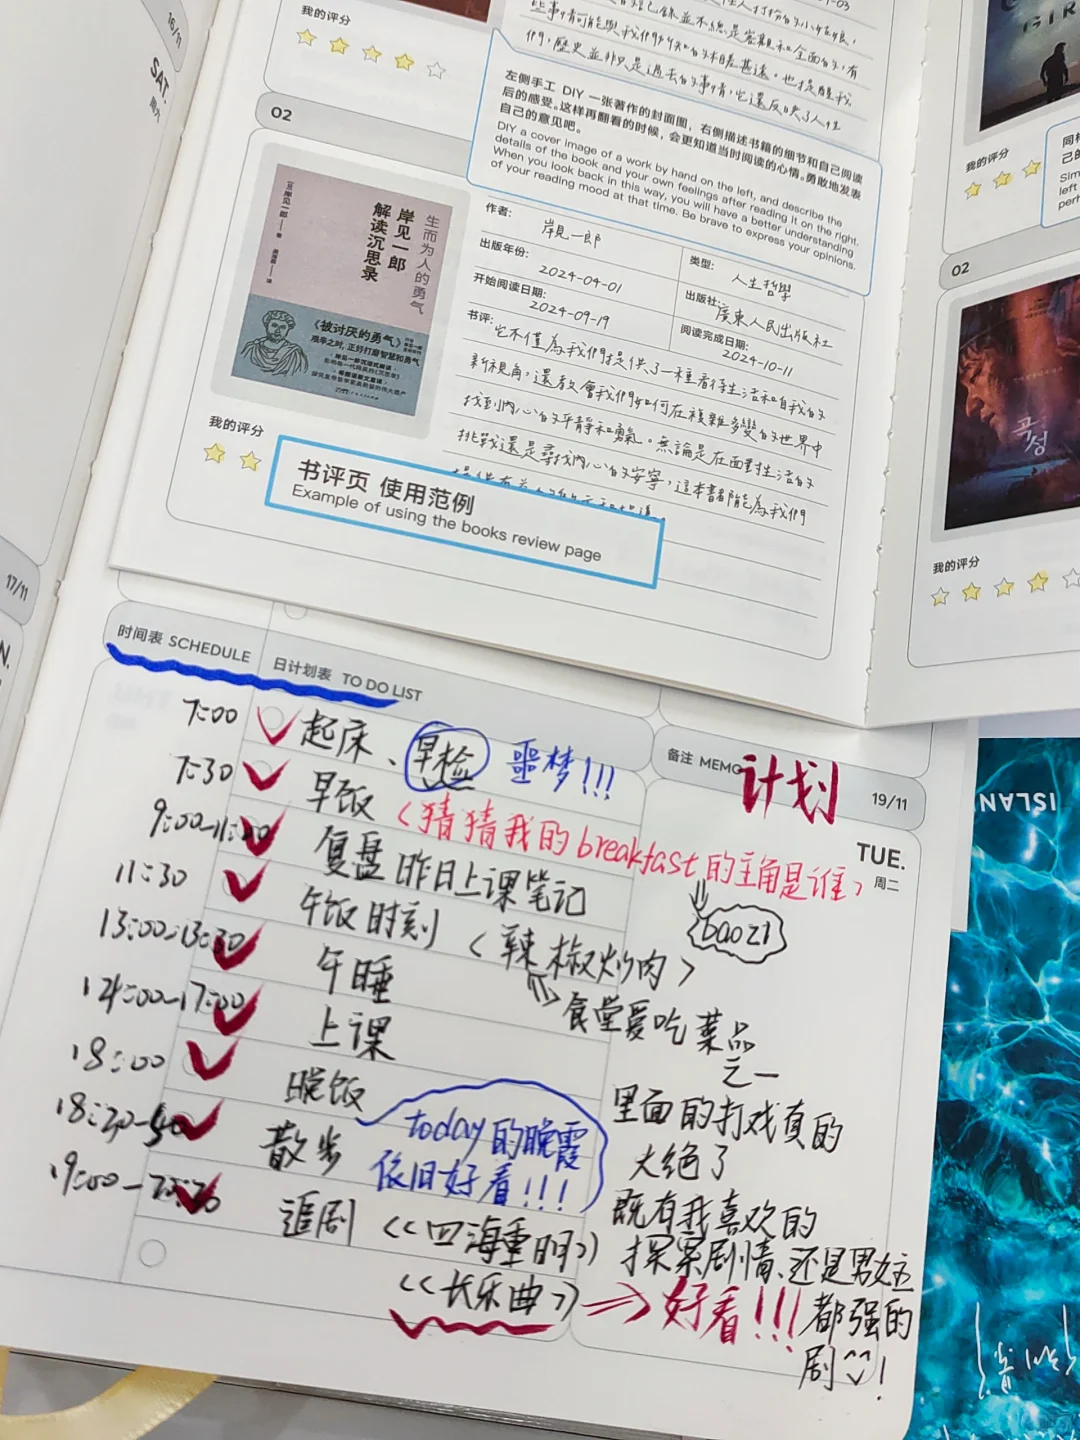 16/11
SAT.
周六
17/11
我的评分
些事情可能與我們所知的相差甚遠。也提醒我
們,歷史並非只是過去的事情,它還反映了人性
左侧手工 DIY 一张著作的封面图,右侧描述书籍的细节和自己阅读
后的感受。这样再翻看的时候,会更知道当时阅读的心情。勇敢地发表
自己的意见吧。
DIY a cover image of a work by hand on the left, and describe the
details of the book and your own feelings after reading it on the right.
When you look back in this way, you will have a better understanding
of your reading mood at that time. Be brave to express your opinions.
02
生而为人的勇气
岸见一郎
解读沉思录
[日]岸见一郎 著
《被讨厌的勇气》
艰辛之时,正好打磨智慧和勇气
我的评分
作者:
岸見一郎
类型:
人生哲學
出版年份:
2024-04-01
出版社:
廣東人民出版社
开始阅读日期:
2024-09-19
阅读完成日期:
2024-10-11
书评:
它不僅為我們提供了一種看待生活和自我的
新視角,還教會我們如何在複雜多變的世界中
找到內心的平靜和勇氣。無論是在面對生活的
挑戰還是尋找內心的安寧,這本書都能為我們
书评页 使用范例
Example of using the books review page
我的评分
02
곡성
我的评分
时间表 SCHEDULE
日计划表 TO DO LIST
备注 MEMO
计划
19/11
TUE.
周二
7:00 起床、早检 噩梦!!!
7:30 早饭 (猜猜我的breakfast的主角是谁)
baozi
9:00-11:00 复盘昨日上课笔记
11:30 午饭时刻 (辣椒炒肉)
食堂爱吃菜品
之一
13:00-13:30 午睡
14:00-17:00 上课
18:00 晚饭
18:20-40 散步
today的晚霞
依旧好看!!!
19:00- 追剧 <<四海重明>>
<<长乐曲>> 好看!!!
里面的打戏真的
太绝了
既有我喜欢的
探案剧情、还是男女主
都强的
剧!
ISLAN